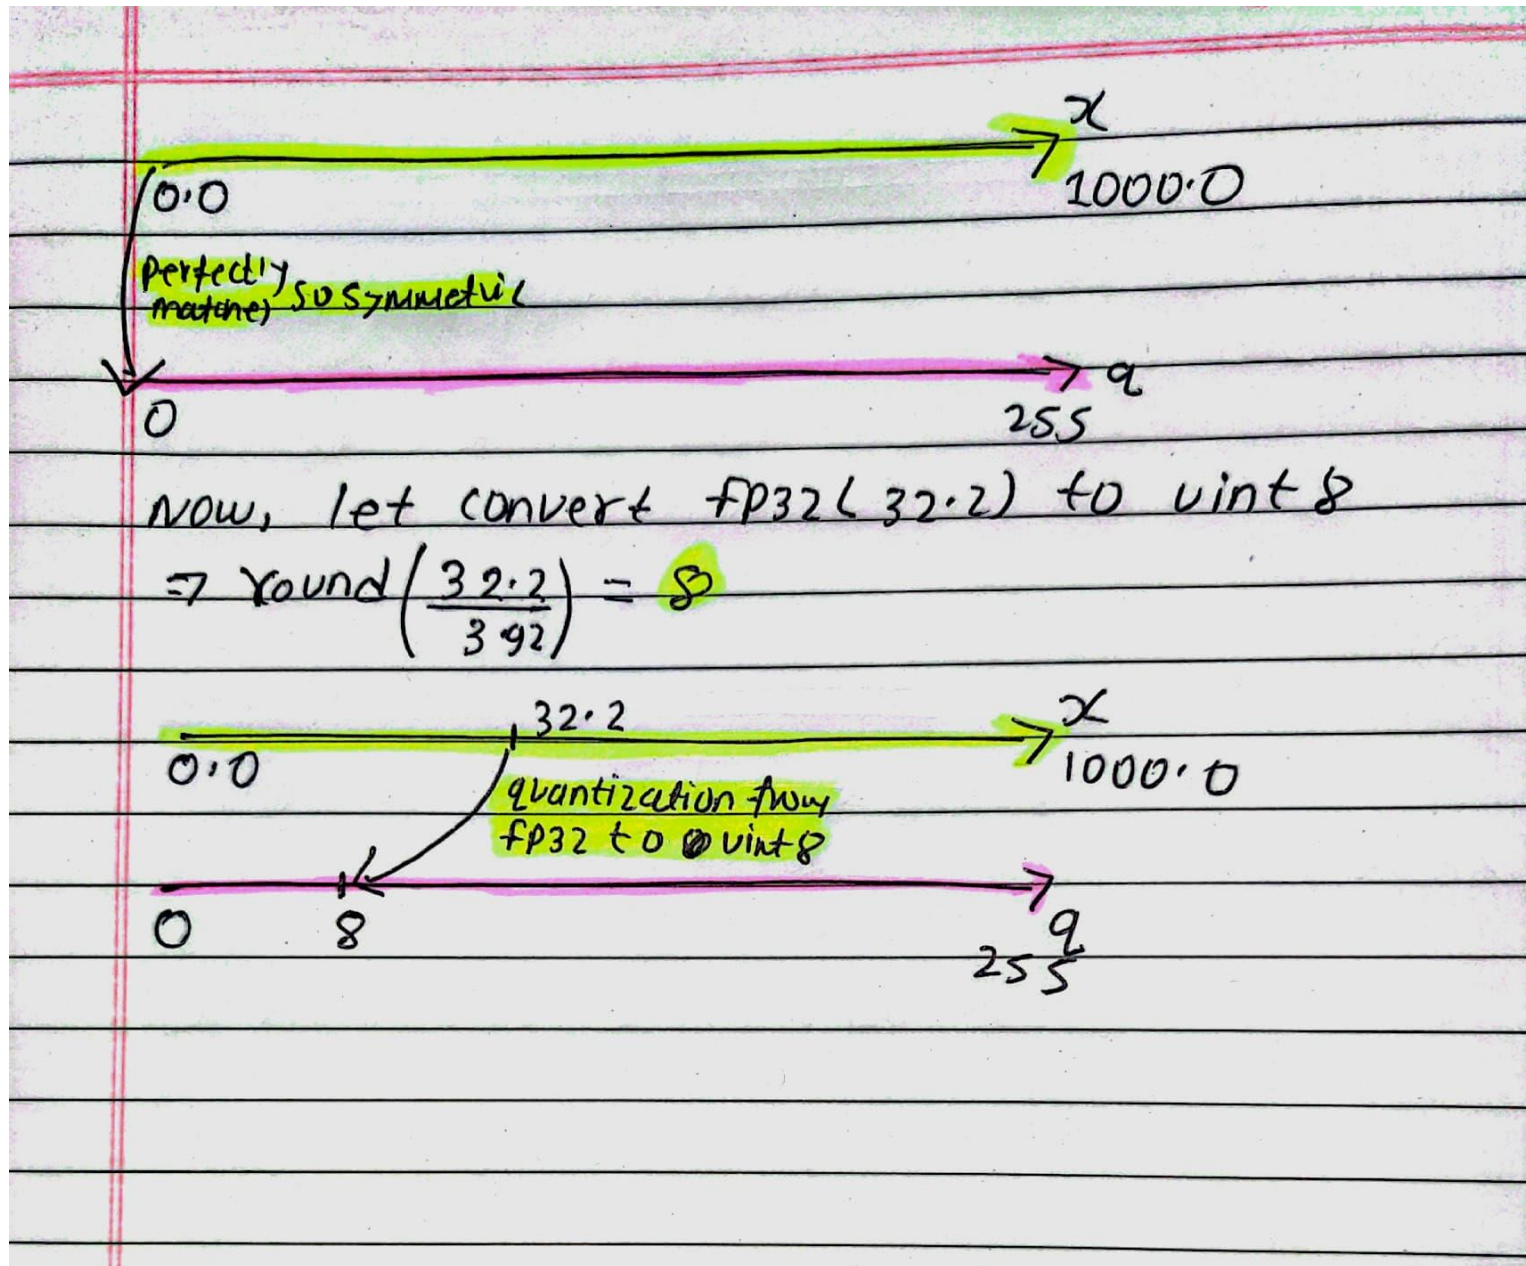 x
0.0 1000.0
Perfectly
matches so symmetric
q
0 255
Now, let convert fp32(32.2) to uint8
⇒ round(32.2/3.92) = 8
32.2 x
0.0 1000.0
quantization from
fp32 to uint8
0 8 q
255